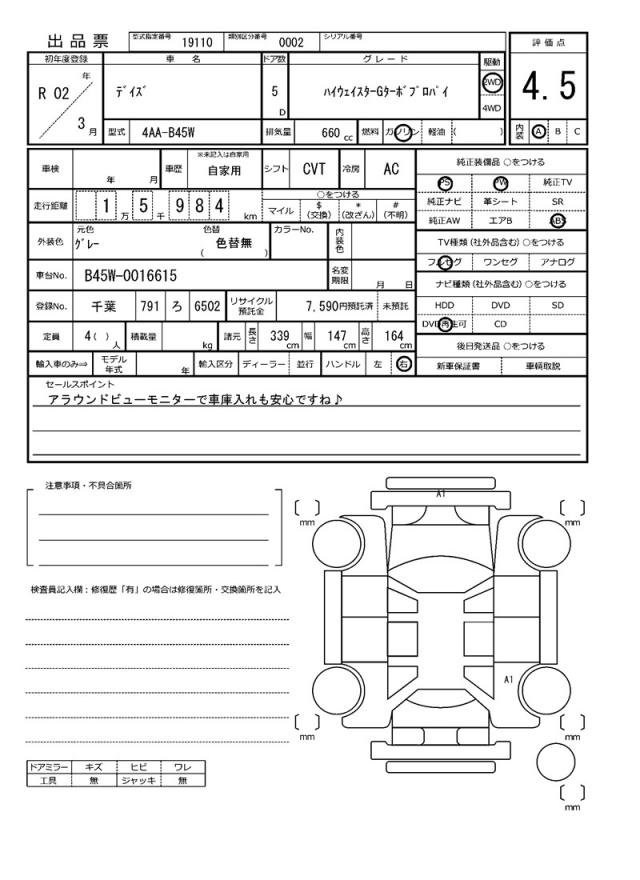 出品票 型式指定番号 19110 類別区分番号 0002 シリアル番号
初年度登録 車名 ドア数 グレード 駆動 評価点
R 02 年 3 月 デイズ 5 D ハイウェイスターGターボプロパイ 2WD 4WD 4.5
型式 4AA-B45W 排気量 660 cc 燃料 ガソリン 軽油 ( ) 内装 A B C
車検 年 月 車歴 ※未記入は自家用 自家用 シフト CVT 冷房 AC
走行距離 1 万 5 千 9 8 4 km ○をつける マイル $(交換) *(改ざん) #(不明)
外装色 元色 グレー 色替 ( 色替無 ) カラーNo. 内装色
車台No. B45W-0016615 名変期限 月 日
登録No. 千葉 791 ろ 6502 リサイクル預託金 7,590円預託済 未預託
定員 4( ) 人 積載量 kg 諸元 長さ 339 cm 幅 147 cm 高さ 164 cm
輸入車のみ⇒ モデル年式 年 輸入区分 ディーラー 並行 ハンドル 左 右
純正装備品 ○をつける
PS PW 純正TV
純正ナビ 革シート SR
純正AW エアB ABS
TV種類(社外品含む) ○をつける
フルセグ ワンセグ アナログ
ナビ種類(社外品含む) ○をつける
HDD DVD SD
DVD再生可 CD
後日発送品 ○をつける
新車保証書 車輌取説
セールスポイント
アラウンドビューモニターで車庫入れも安心ですね♪
注意事項・不具合箇所
検査員記入欄:修復歴「有」の場合は修復箇所・交換箇所を記入
ドアミラー キズ ヒビ ワレ
工具 無 ジャッキ 無
A1
mm mm
A1
mm mm
mm